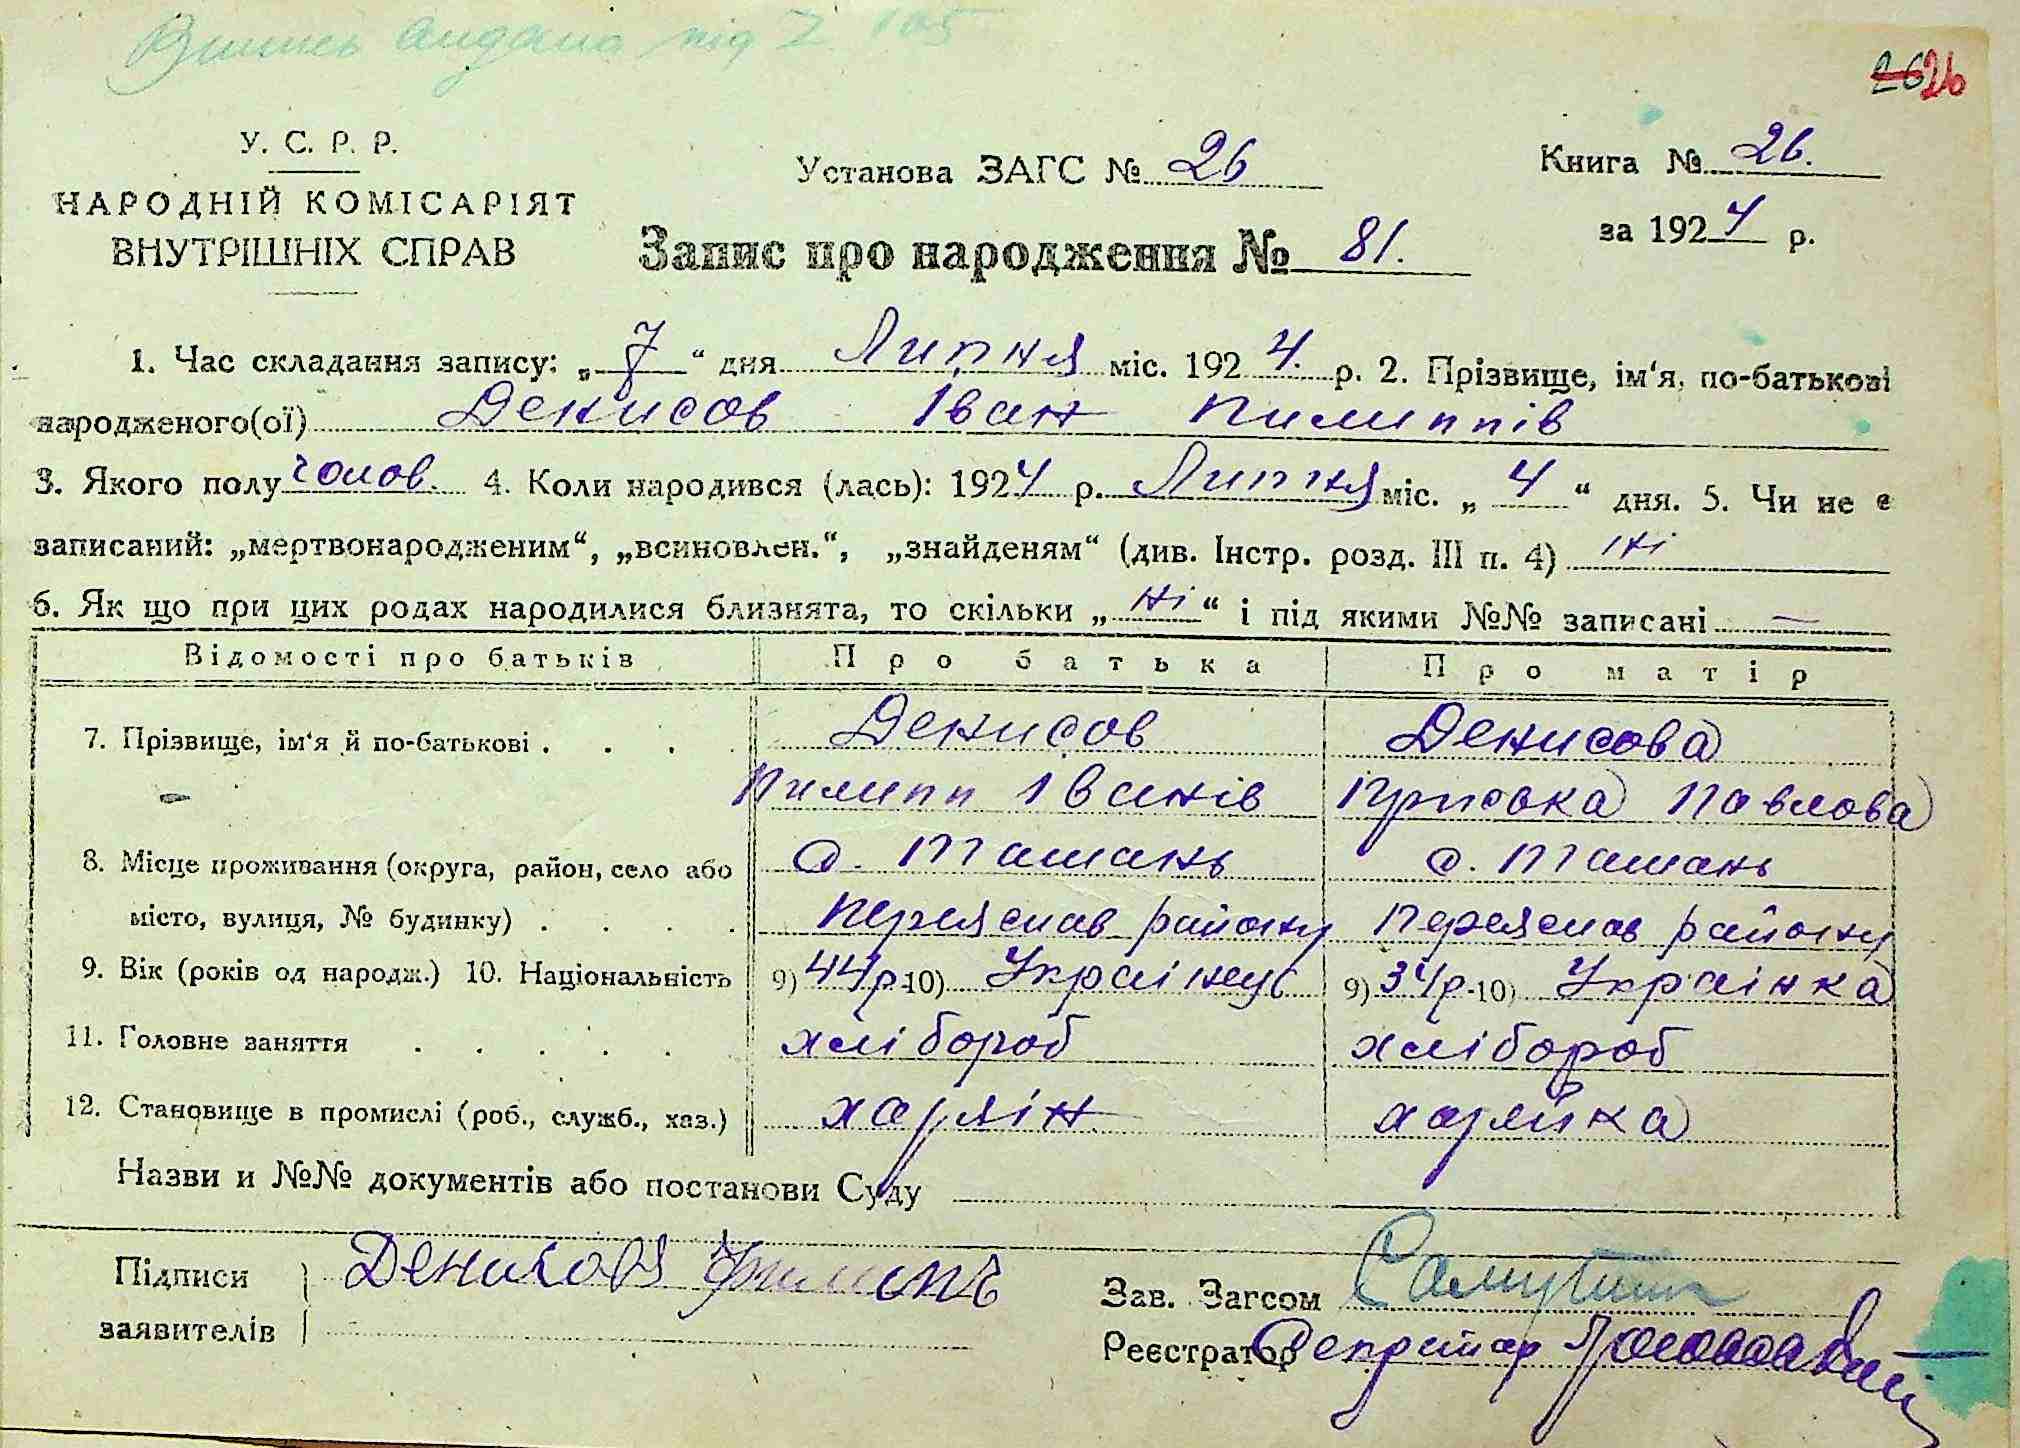 Випись видана під № 105
26 26
У. С. Р. Р.
НАРОДНІЙ КОМІСАРІЯТ
ВНУТРІШНІХ СПРАВ
Установа ЗАГС № 26
Книга № 26.
за 1924 р.
Запис про народження № 81.
1. Час складання запису: „7“ дня Липня міс. 1924. р. 2. Прізвище, ім‘я, по-батькові
народженого(ої) Денисов Іван Пилиппів
3. Якого полу чолов. 4. Коли народився (лась): 1924 р. Липня міс. „4“ дня. 5. Чи не є
записаний: „мертвонародженим“, „всиновлен.“, „знайденям“ (див. Інстр. розд. III п. 4) ні
6. Як що при цих родах народилися близнята, то скільки „ні“ і під якими №№ записані —
Відомості про батьків Про батька Про матір
7. Прізвище, ім‘я й по-батькові . . . . Денисов Денисова
Пилипп Іванів Приська Павлова
8. Місце проживання (округа, район, село або с. Ташань с. Ташань
місто, вулиця, № будинку) . . . . Переяслав району Переяслав району
9. Вік (років од народж.) 10. Національність 9) 44 р. 10) Українець 9) 34 р. 10) Українка
11. Головне заняття . . . . . хлібороб хлібороб
12. Становище в промислі (роб., служб., хаз.) хазяїн хазяйка
Назви и №№ документів або постанови Суду
Підписи
заявителів
Денисовъ Филипъ
Зав. Загсом
Реєстратор Секретар